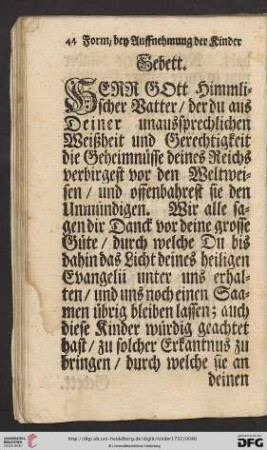 44 Form/ bey Auffnehmung der Kinder
Gebett.
HERR GOtt Himmli-
scher Vatter / der du aus
Deiner unaussprechlichen
Weißheit und Gerechtigkeit
die Geheimnüsse deines Reichs
verbirgest vor den Weltwei-
sen / und offenbahrest sie den
Unmündigen. Wir alle sa-
gen dir Danck vor deine grosse
Güte / durch welche Du bis
dahin das Licht deines heiligen
Evangelii unter uns erhal-
ten / und uns noch einen Saa-
men übrig bleiben lassen; auch
diese Kinder würdig geachtet
hast / zu solcher Erkantnus zu
bringen / durch welche sie an
deinen
http://digi.ub.uni-heidelberg.de/diglit/kinder1732/0046
© Universitätsbibliothek Heidelberg
gefördert durch die
DFG